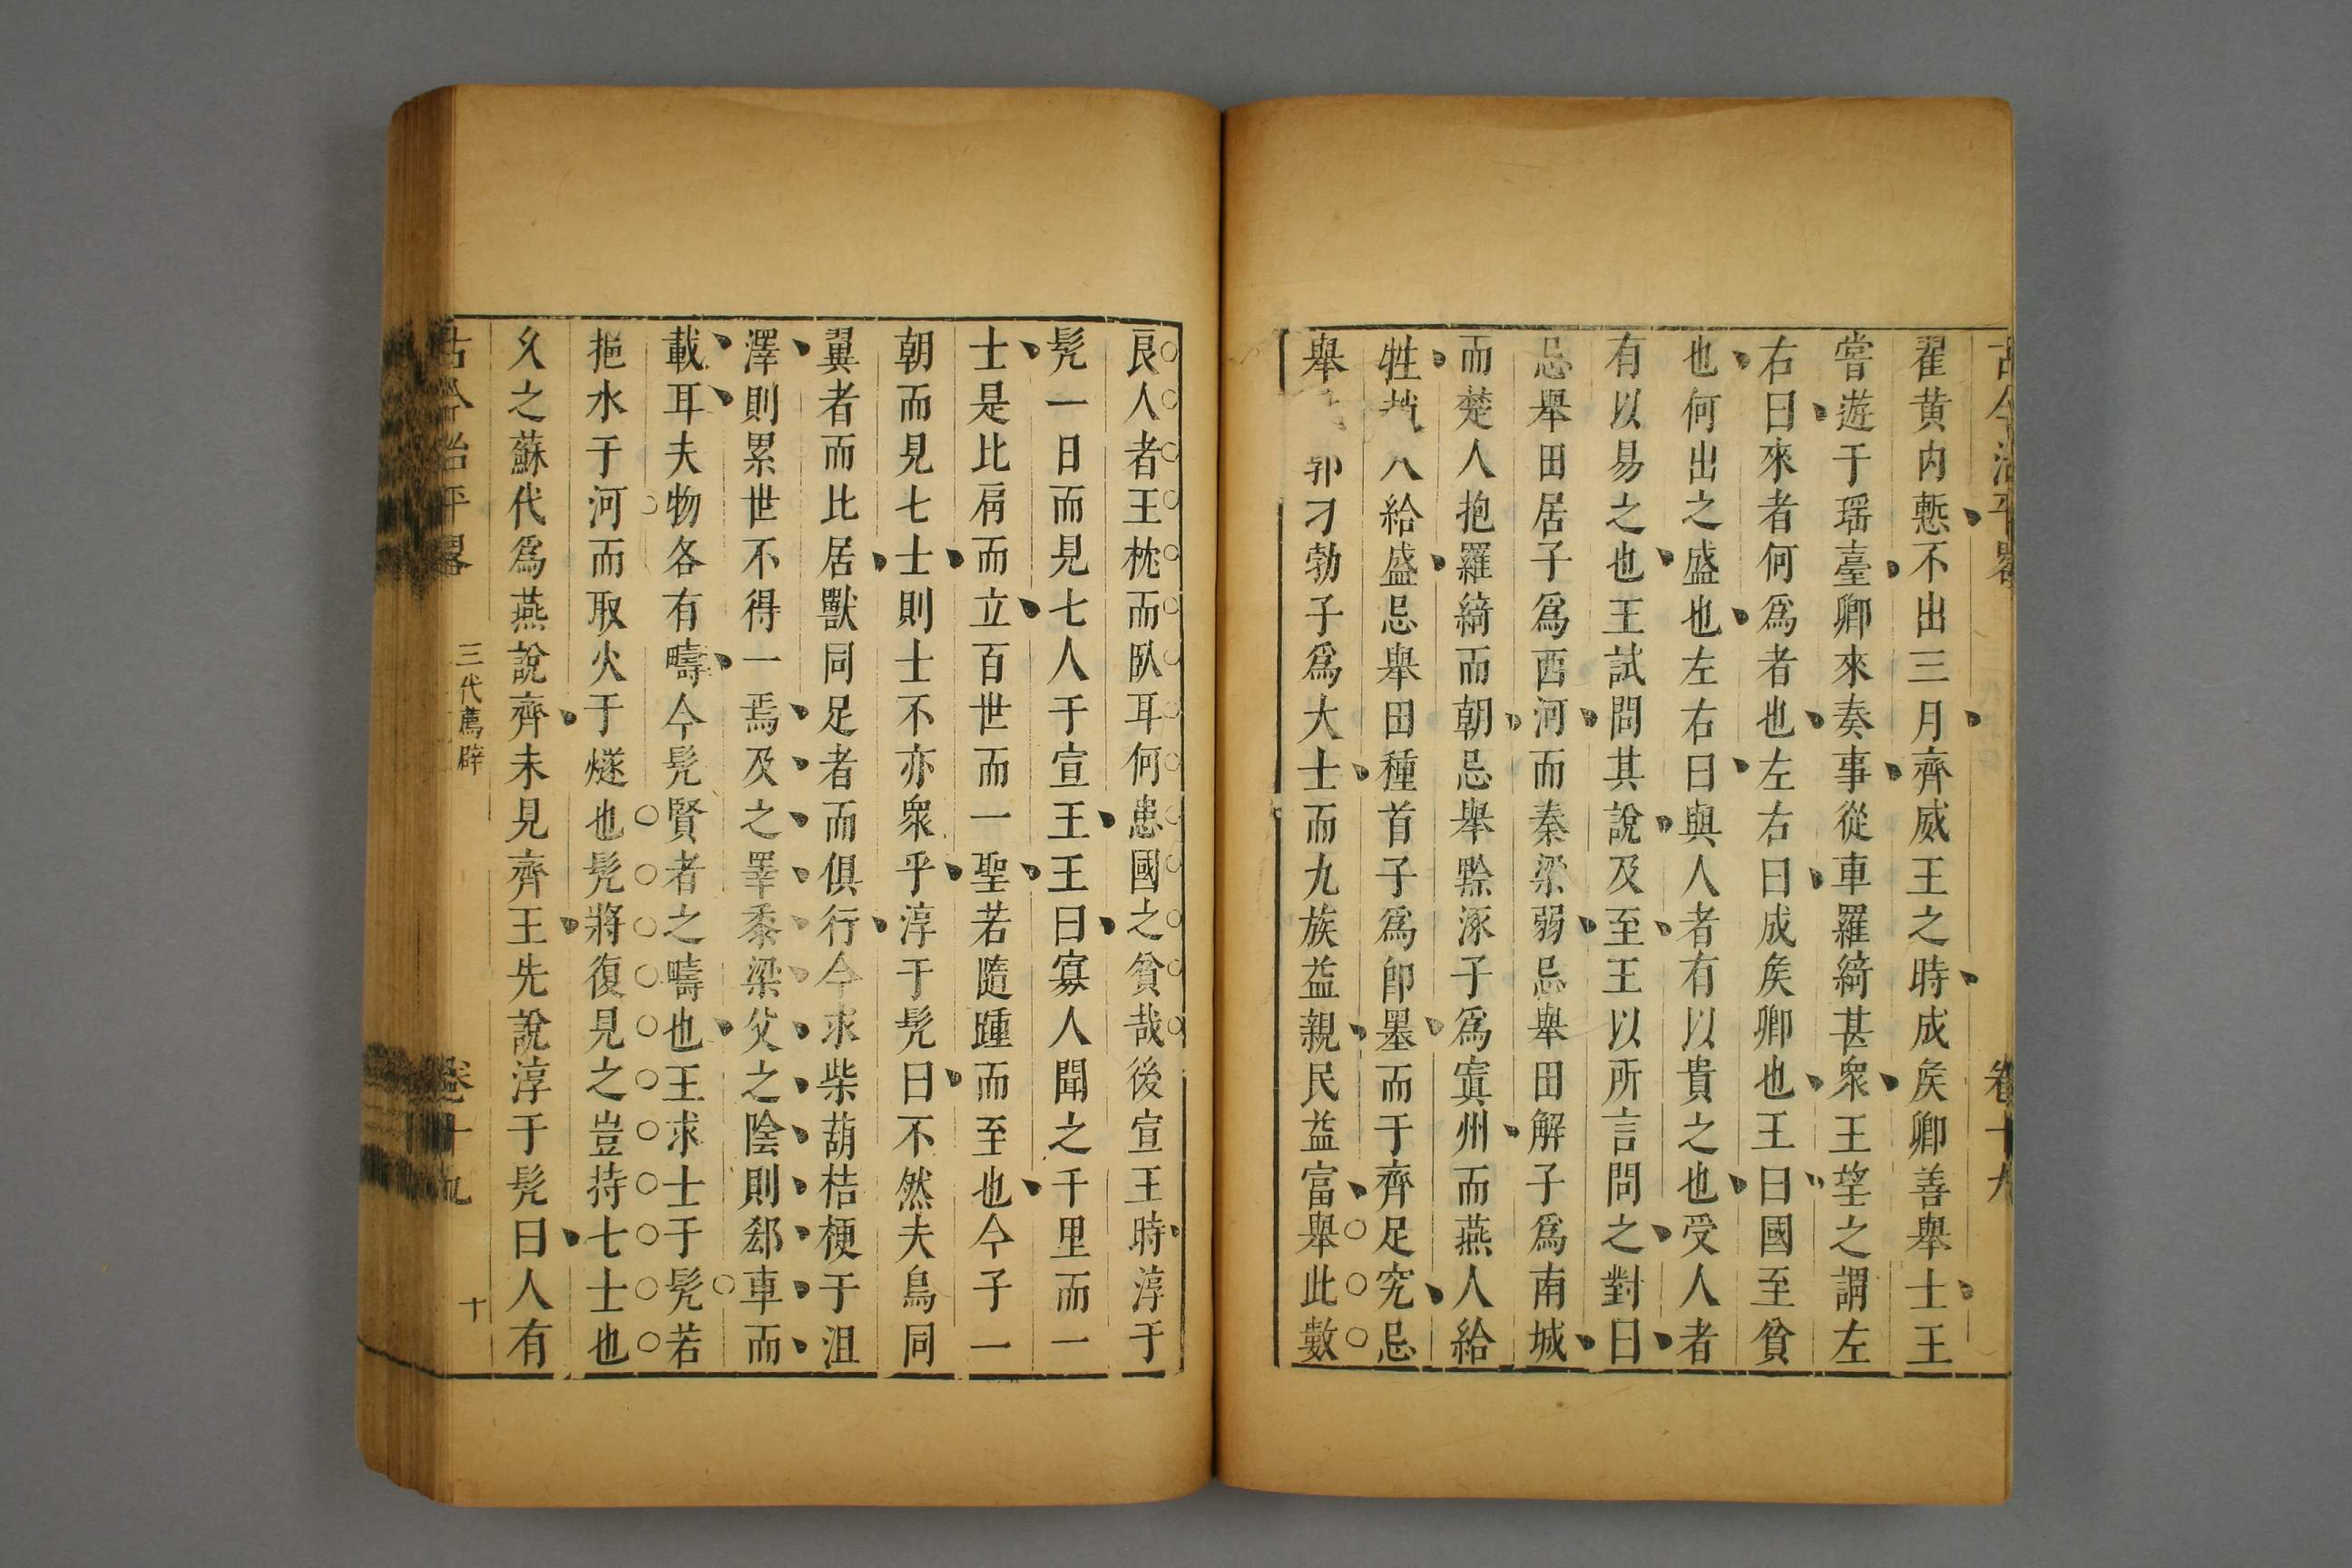 古今治平畧 卷十九
翟黄内慙不出三月齊威王之時成矦卿善舉士王
嘗遊于瑶臺卿來奏事從車羅綺甚衆王望之謂左
右曰來者何爲者也左右曰成矦卿也王曰國至貧
也何出之盛也左右曰與人者有以貴之也受人者
有以易之也王試問其說及至王以所言問之對曰
忌舉田居子爲西河而秦梁弱忌舉田解子爲南城
而楚人抱羅綺而朝忌舉黔涿子爲寘州而燕人給
牲八給盛忌舉田種首子爲卽墨而于齊足究忌
舉郭刁勃子爲大士而九族益親民益富舉此數
良人者王枕而臥耳何患國之貧哉後宣王時淳于
髠一日而見七人于宣王王曰寡人聞之千里而一
士是比肩而立百世而一聖若隨踵而至也今子一
朝而見七士則士不亦衆乎淳于髠曰不然夫鳥同
翼者而比居獸同足者而俱行今求柴葫桔梗于沮
澤則累世不得一焉及之睪黍梁父之陰則郄車而
載耳夫物各有疇今髠賢者之疇也王求士于髠若
挹水于河而取火于燧也髠將復見之豈持七士也
久之蘇代爲燕說齊未見齊王先說淳于髠曰人有
古今治平畧 三代薦辟 卷十九 十